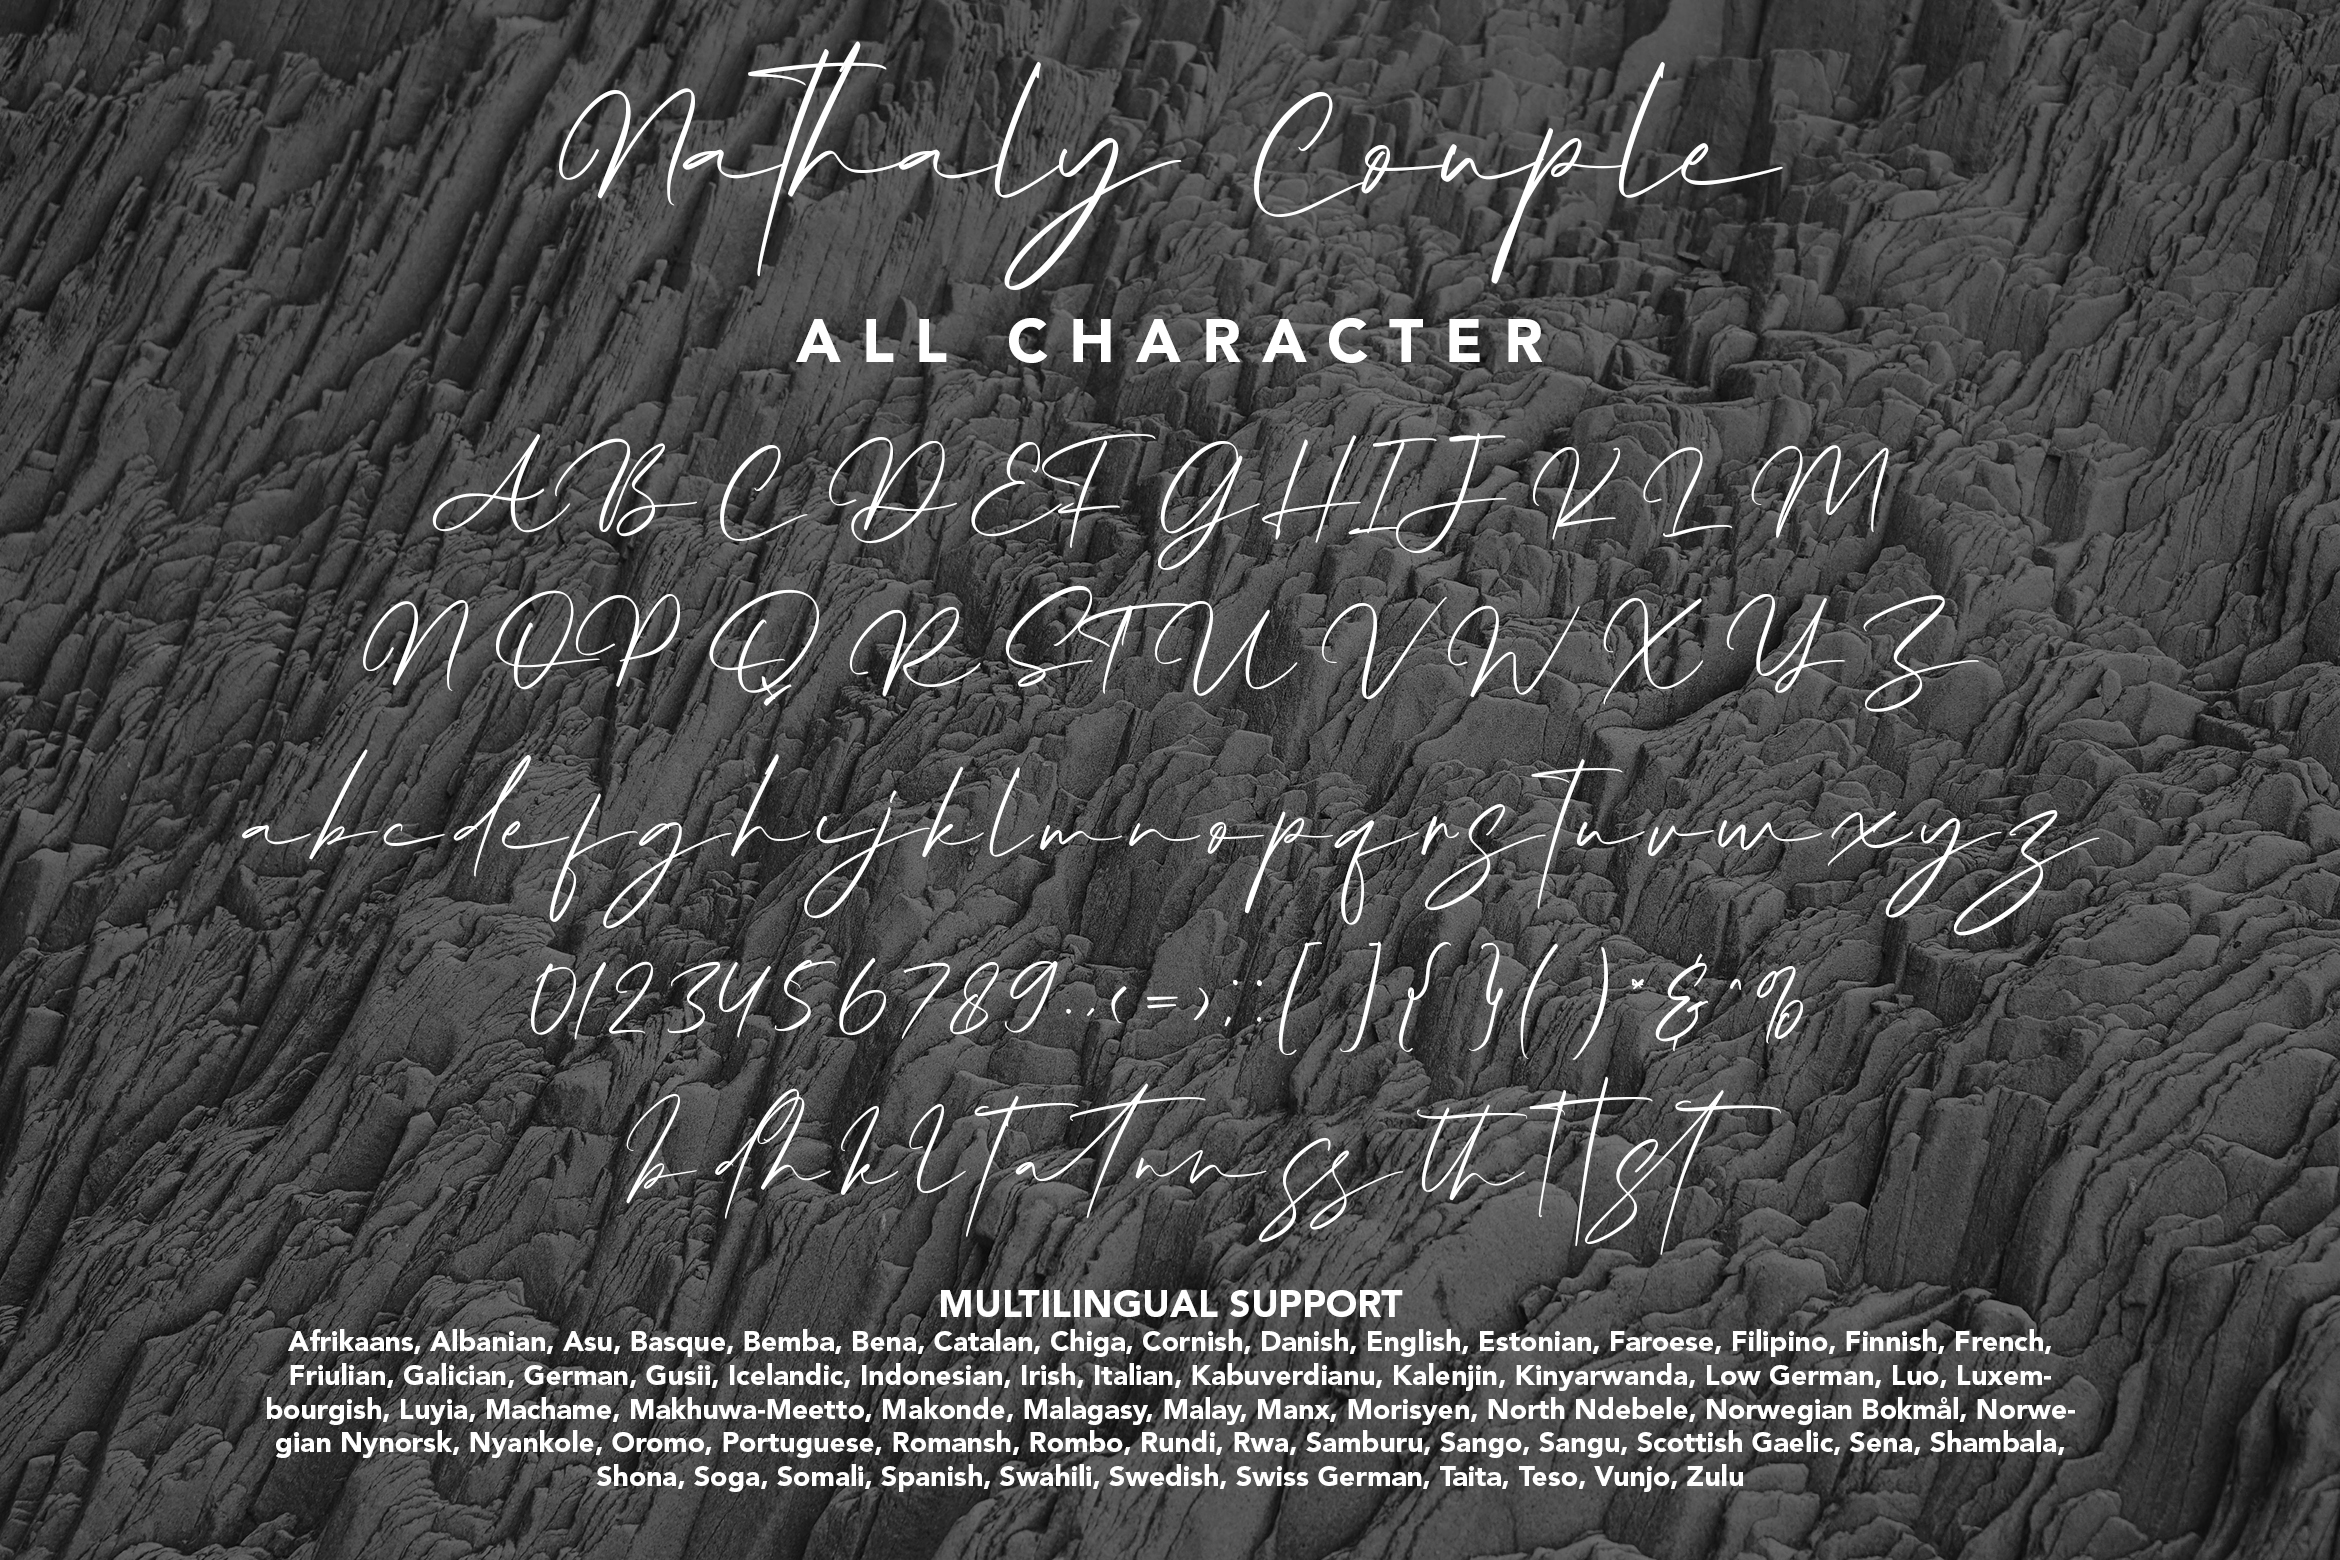 Nathaly Couple
ALL CHARACTER
A B C D E F G H I J K L M
N O P Q R S T U V W X Y Z
a b c d e f g h i j k l m n o p q r s t u v w x y z
0 1 2 3 4 5 6 7 8 9 . , ( = ) ; : [ ] { } ( ) * & ^ %
b d h k l t at nn ss th tt st
MULTILINGUAL SUPPORT
Afrikaans, Albanian, Asu, Basque, Bemba, Bena, Catalan, Chiga, Cornish, Danish, English, Estonian, Faroese, Filipino, Finnish, French,
Friulian, Galician, German, Gusii, Icelandic, Indonesian, Irish, Italian, Kabuverdianu, Kalenjin, Kinyarwanda, Low German, Luo, Luxem-
bourgish, Luyia, Machame, Makhuwa-Meetto, Makonde, Malagasy, Malay, Manx, Morisyen, North Ndebele, Norwegian Bokmål, Norwe-
gian Nynorsk, Nyankole, Oromo, Portuguese, Romansh, Rombo, Rundi, Rwa, Samburu, Sango, Sangu, Scottish Gaelic, Sena, Shambala,
Shona, Soga, Somali, Spanish, Swahili, Swedish, Swiss German, Taita, Teso, Vunjo, Zulu